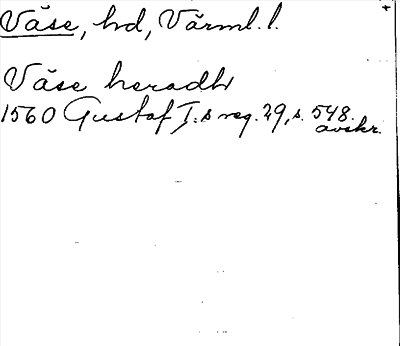 Väse, hd, Värml. l.
Väse heradh
1560 Gustaf I.s reg. 29, s. 548.
avskr.